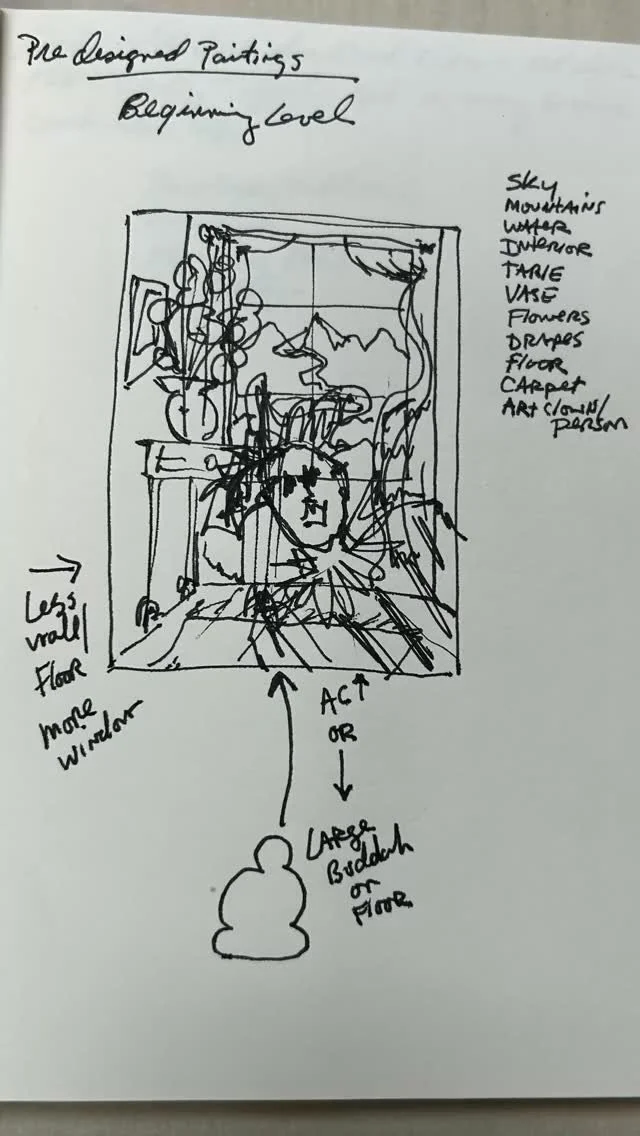 Pre designed Paitings
Beginning Level
Sky
Mountains
Water
Interior
Table
Vase
Flowers
Drapes
Floor
Carpet
Art Clown/
person
Less
wall/
Floor
more
window
AC
OR
Large
Buddah
or
Floor